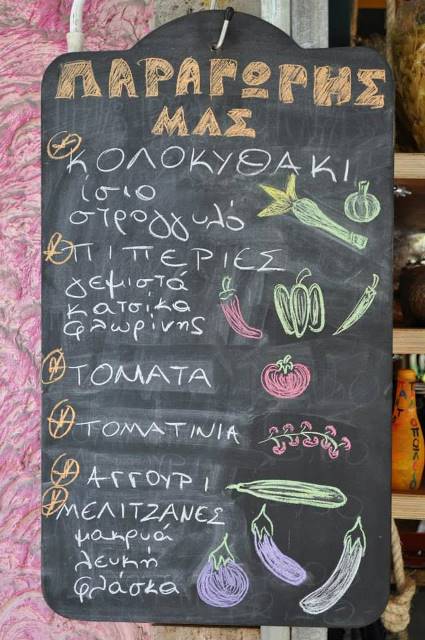 ΠΑΡΑΓΩΡΗΣ
ΜΑΣ
ΚΟΛΟΚΥΘΑΚΙ
ίσιο
στρογγυλό
ΠΙΠΕΡΙΕΣ
γεμιστά
κατσίκα
φλωρίνης
ΤΟΜΑΤΑ
ΤΟΜΑΤΙΝΙΑ
ΑΓΓΟΥΡΙ
ΜΕΛΙΤΖΑΝΕΣ
μακρυά
λευκή
φλάσκα